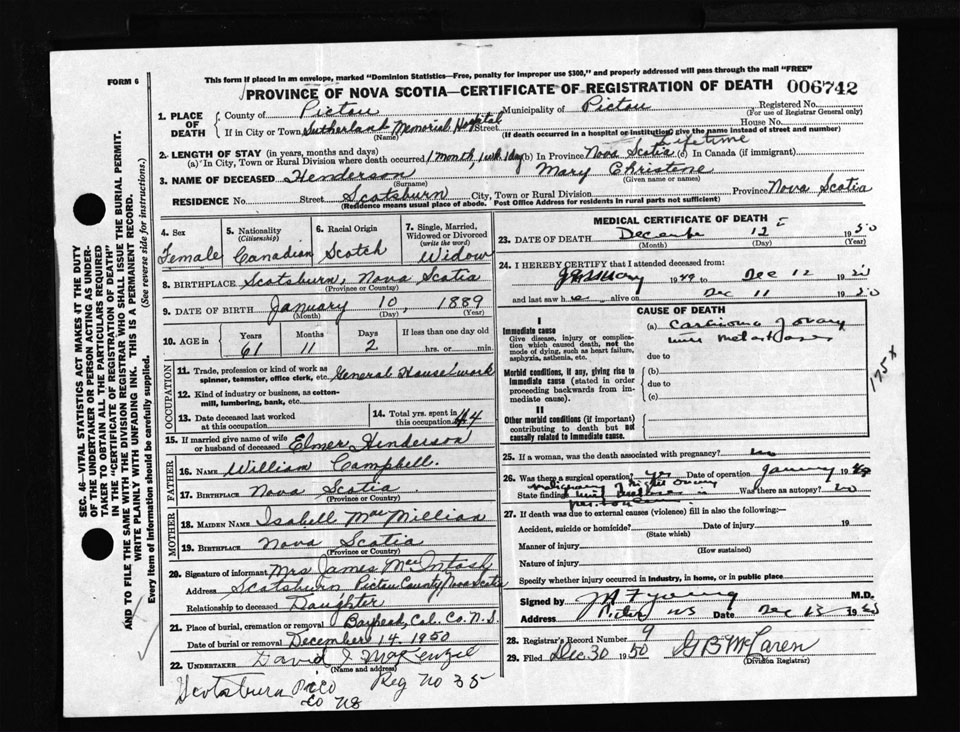 This form if placed in an envelope, marked "Dominion Statistics—Free, penalty for improper use $300," and properly addressed will pass through the mail "FREE"
FORM 6
PROVINCE OF NOVA SCOTIA—CERTIFICATE OF REGISTRATION OF DEATH 006742
1. PLACE OF DEATH
County of Pictou Municipality of Pictou Registered No.
(For use of Registrar General only)
If in City or Town Sutherland Memorial Hospital Street House No.
(Name) (If death occurred in a hospital or institution, give the name instead of street and number)
2. LENGTH OF STAY (in years, months and days) Lifetime
(a) In City, Town or Rural Division where death occurred 1 month, 1 wk. 1 day (b) In Province Nova Scotia (c) In Canada (if immigrant)
3. NAME OF DECEASED Henderson Mary Christine
(Surname) (Given name or names)
RESIDENCE No. Street Scotsburn City, Town or Rural Division Province Nova Scotia
(Residence means usual place of abode. Post Office Address for residents in rural parts not sufficient)
4. Sex Female
5. Nationality (Citizenship) Canadian
6. Racial Origin Scotch
7. Single, Married, Widowed or Divorced (write the word) Widow
8. BIRTHPLACE Scotsburn, Nova Scotia
(Province or Country)
9. DATE OF BIRTH January 10, 1889
(Month) (Day) (Year)
10. AGE in Years Months Days If less than one day old
61 11 2 hrs. or min.
OCCUPATION
11. Trade, profession or kind of work as spinner, teamster, office clerk, etc. General Housework
12. Kind of industry or business, as cotton-mill, lumbering, bank, etc.
13. Date deceased last worked at this occupation
14. Total yrs. spent in this occupation 44
15. If married give name of wife or husband of deceased Elmer Henderson
FATHER
16. NAME William Campbell.
17. BIRTHPLACE Nova Scotia
(Province or Country)
MOTHER
18. MAIDEN NAME Isabell MacMillian
19. BIRTHPLACE Nova Scotia
(Province or Country)
20. Signature of informant Mrs James MacIntosh
Address Scotsburn Pictou County, Nova Scotia
Relationship to deceased Daughter
21. Place of burial, cremation or removal Col. Co. N.S.
Date of burial or removal December 14, 1950
22. UNDERTAKER David MacKenzie
(Name and address)
Scotsburn Pic Co NS Reg No 35
MEDICAL CERTIFICATE OF DEATH
23. DATE OF DEATH December 12 1950
(Month) (Day) (Year)
24. I HEREBY CERTIFY that I attended deceased from:
January 1949 to Dec 12 1950
and last saw h alive on Dec 11 1950
CAUSE OF DEATH
I
Immediate cause
Give disease, injury or complication which caused death, not the mode of dying, such as heart failure, asphyxia, asthenia, etc.
(a) Carcinoma of ovary
with metastases
due to
Morbid conditions, if any, giving rise to immediate cause (stated in order proceeding backwards from immediate cause).
(b)
due to
(c)
II
Other morbid conditions (if important) contributing to death but not causally related to immediate cause.
175 x
25. If a woman, was the death associated with pregnancy? no
26. Was there a surgical operation? yes Date of operation January 1949
State findings malignancy right ovary with
Was there an autopsy? no
27. If death was due to external causes (violence) fill in also the following:—
Accident, suicide or homicide? Date of injury 19
(State which)
Manner of injury
(How sustained)
Nature of injury
Specify whether injury occurred in industry, in home, or in public place
Signed by M F Young M.D.
Address Pictou NS Date Dec 13 1950
28. Registrar's Record Number 9
29. Filed Dec 30 1950 G B McLaren
(Division Registrar)
SEC. 46—VITAL STATISTICS ACT MAKES IT THE DUTY OF THE UNDERTAKER OR PERSON ACTING AS UNDERTAKER TO OBTAIN ALL THE PARTICULARS REQUIRED IN THE "CERTIFICATE OF REGISTRATION OF DEATH" AND TO FILE THE SAME WITH THE DIVISION REGISTRAR WHO SHALL ISSUE THE BURIAL PERMIT.
WRITE PLAINLY WITH UNFADING INK. THIS IS A PERMANENT RECORD.
Every item of Information should be carefully supplied. (See reverse side for instructions.)